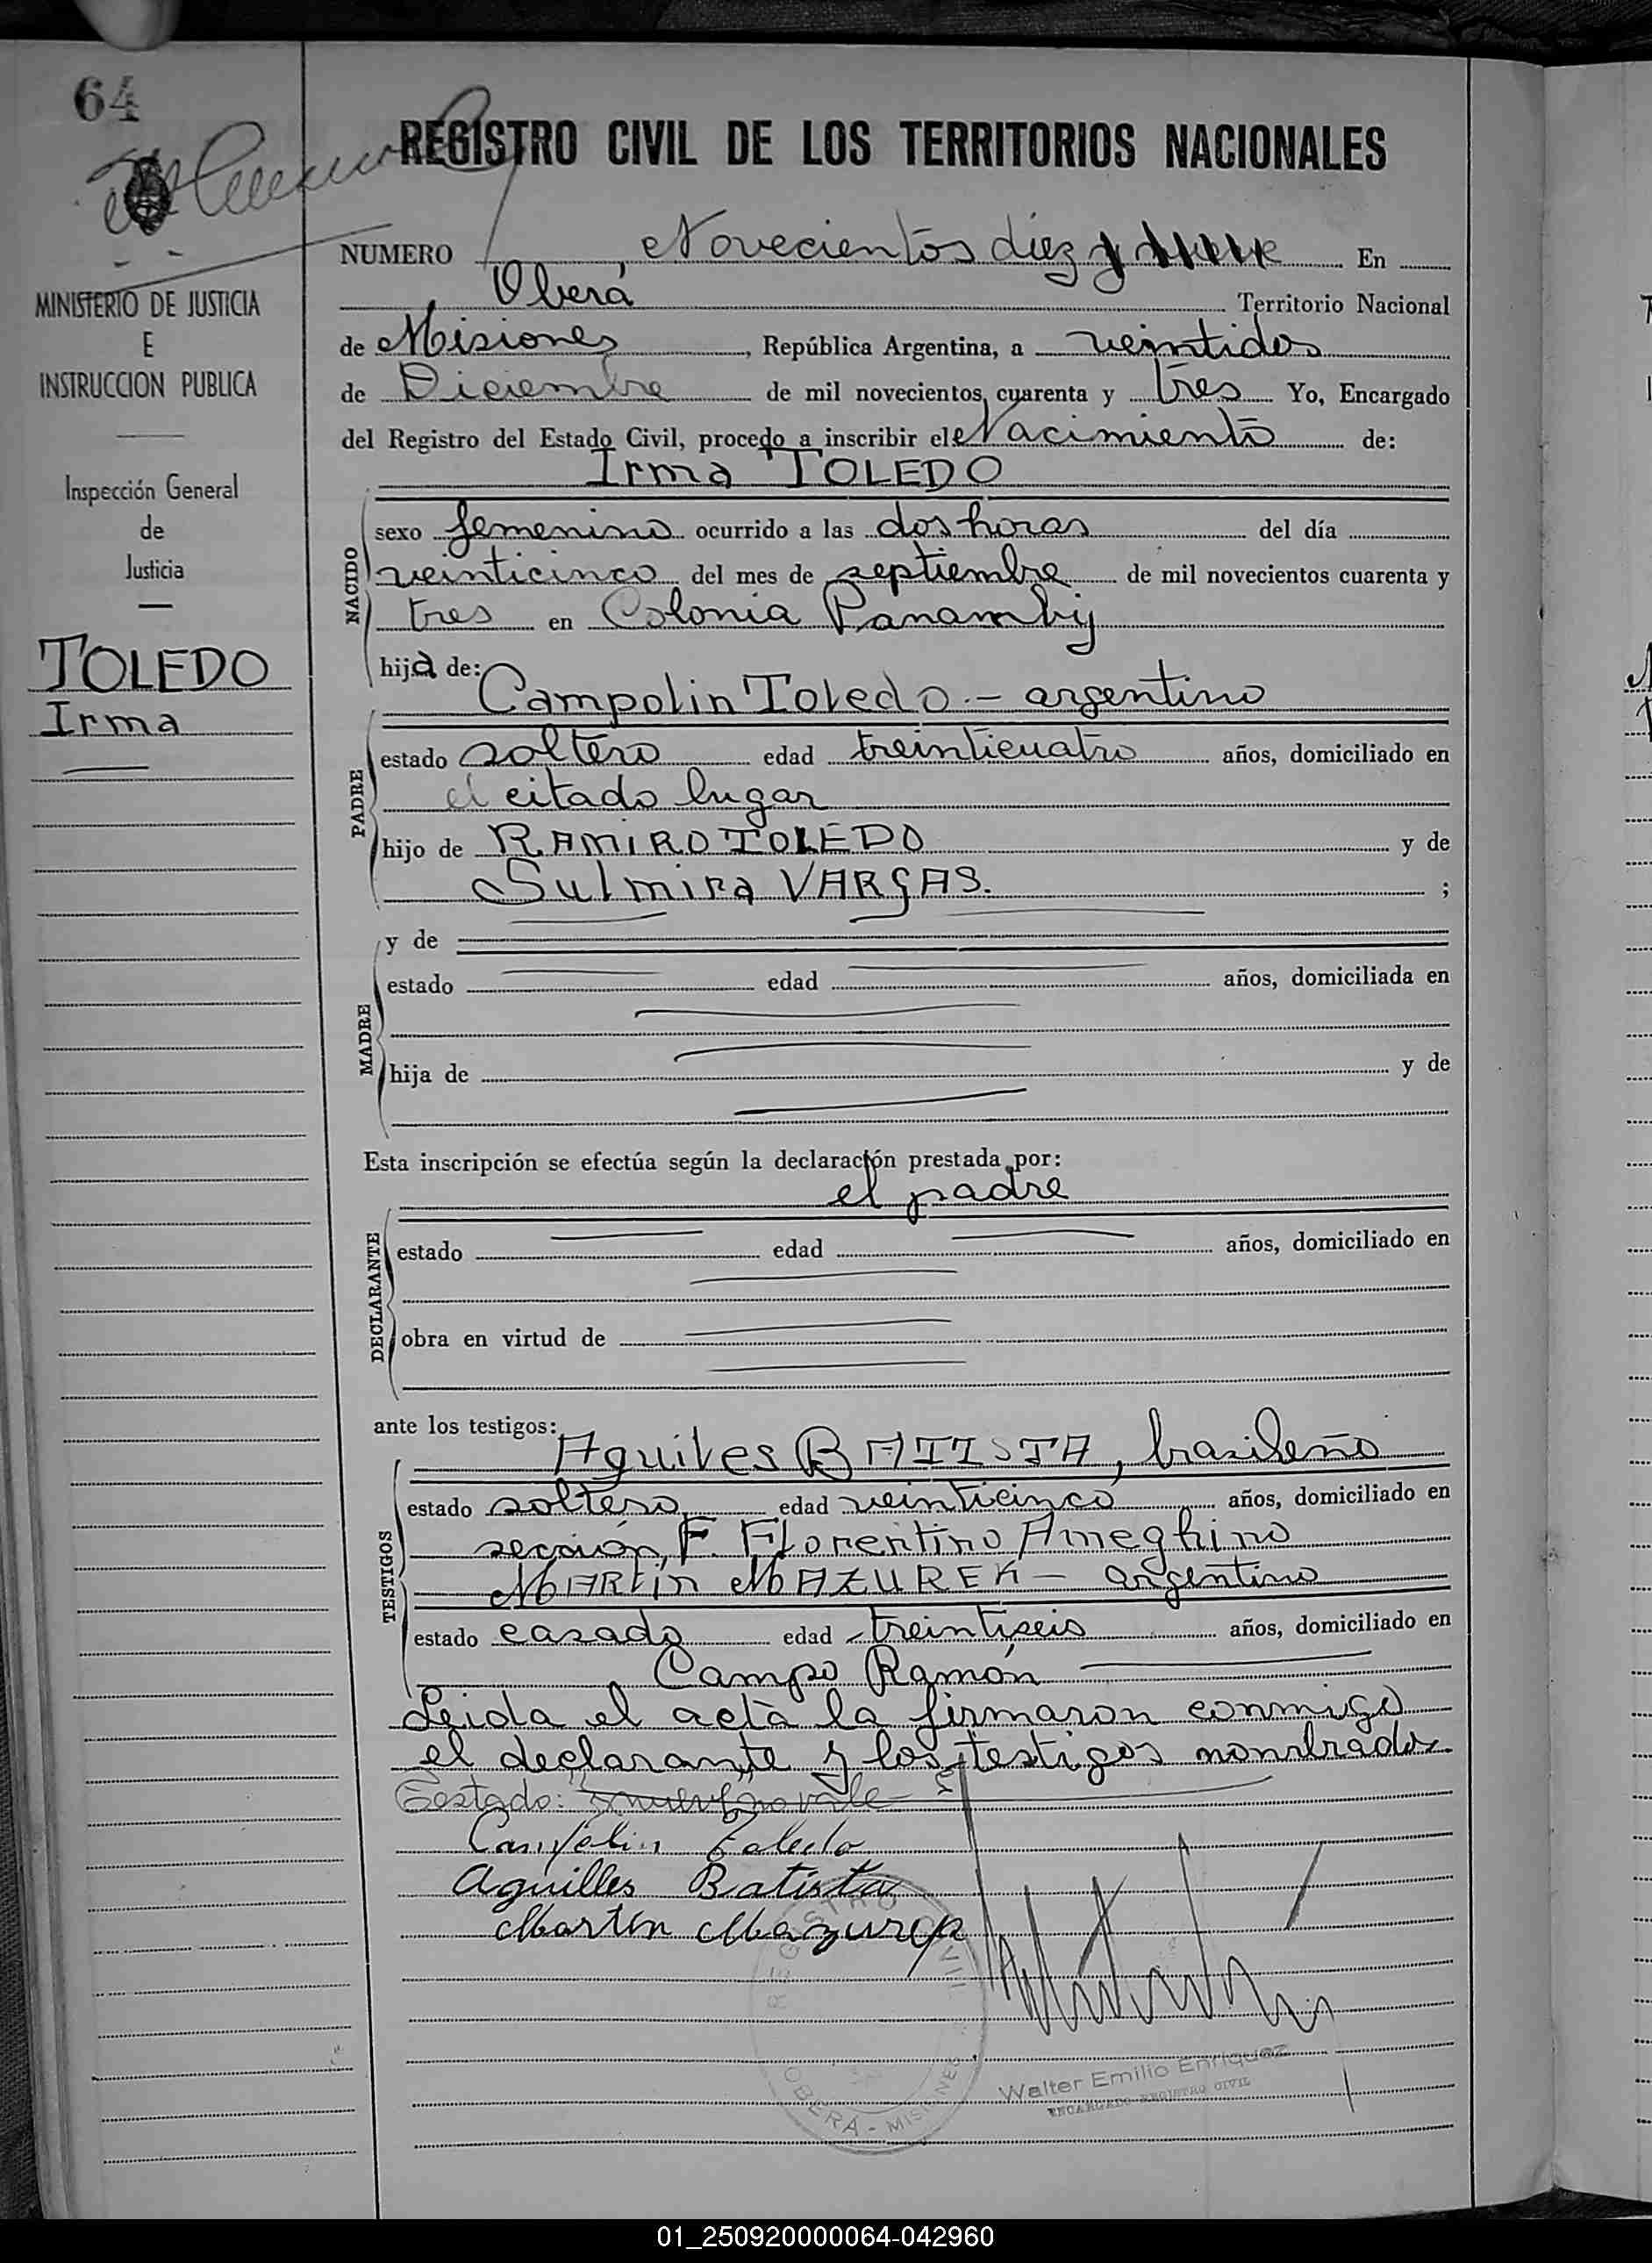 64
REGISTRO CIVIL DE LOS TERRITORIOS NACIONALES
NUMERO Novecientos diez En
Oberá Territorio Nacional
de Misiones, República Argentina, a veintidos
de Diciembre de mil novecientos cuarenta y tres Yo, Encargado
del Registro del Estado Civil, procedo a inscribir el Nacimiento de:
Irma TOLEDO
NACIDO
sexo femenino ocurrido a las dos horas del día
veinticinco del mes de septiembre de mil novecientos cuarenta y
tres en Colonia Panamby
hija de:
Campolin Toledo - argentino
PADRE
estado soltero edad treinticuatro años, domiciliado en
el citado lugar
hijo de RAMIRO TOLEDO y de
Sulmira VARGAS. ;
MADRE
y de
estado edad años, domiciliada en
hija de y de
Esta inscripción se efectúa según la declaración prestada por:
el padre
DECLARANTE
estado edad años, domiciliado en
obra en virtud de
ante los testigos:
Aquiles BATISTA, brasileño
TESTIGOS
estado soltero edad veinticinco años, domiciliado en
sección, F. Florentino Ameghino
MARtin MAZUREK - argentino
estado casado edad treintiseis años, domiciliado en
Campo Ramón
Leida el acta la firmaron conmigo
el declarante y los testigos nombrados
Testado: no vale
Toledo
Aguilles Batista
Martin Mazurek
REGISTRO CIVIL
OBERÁ - MISIONES
Walter Emilio Enriquez
ENCARGADO REGISTRO CIVIL
MINISTERIO DE JUSTICIA
E
INSTRUCCION PUBLICA
Inspección General
de
Justicia
TOLEDO
Irma
01_250920000064-042960